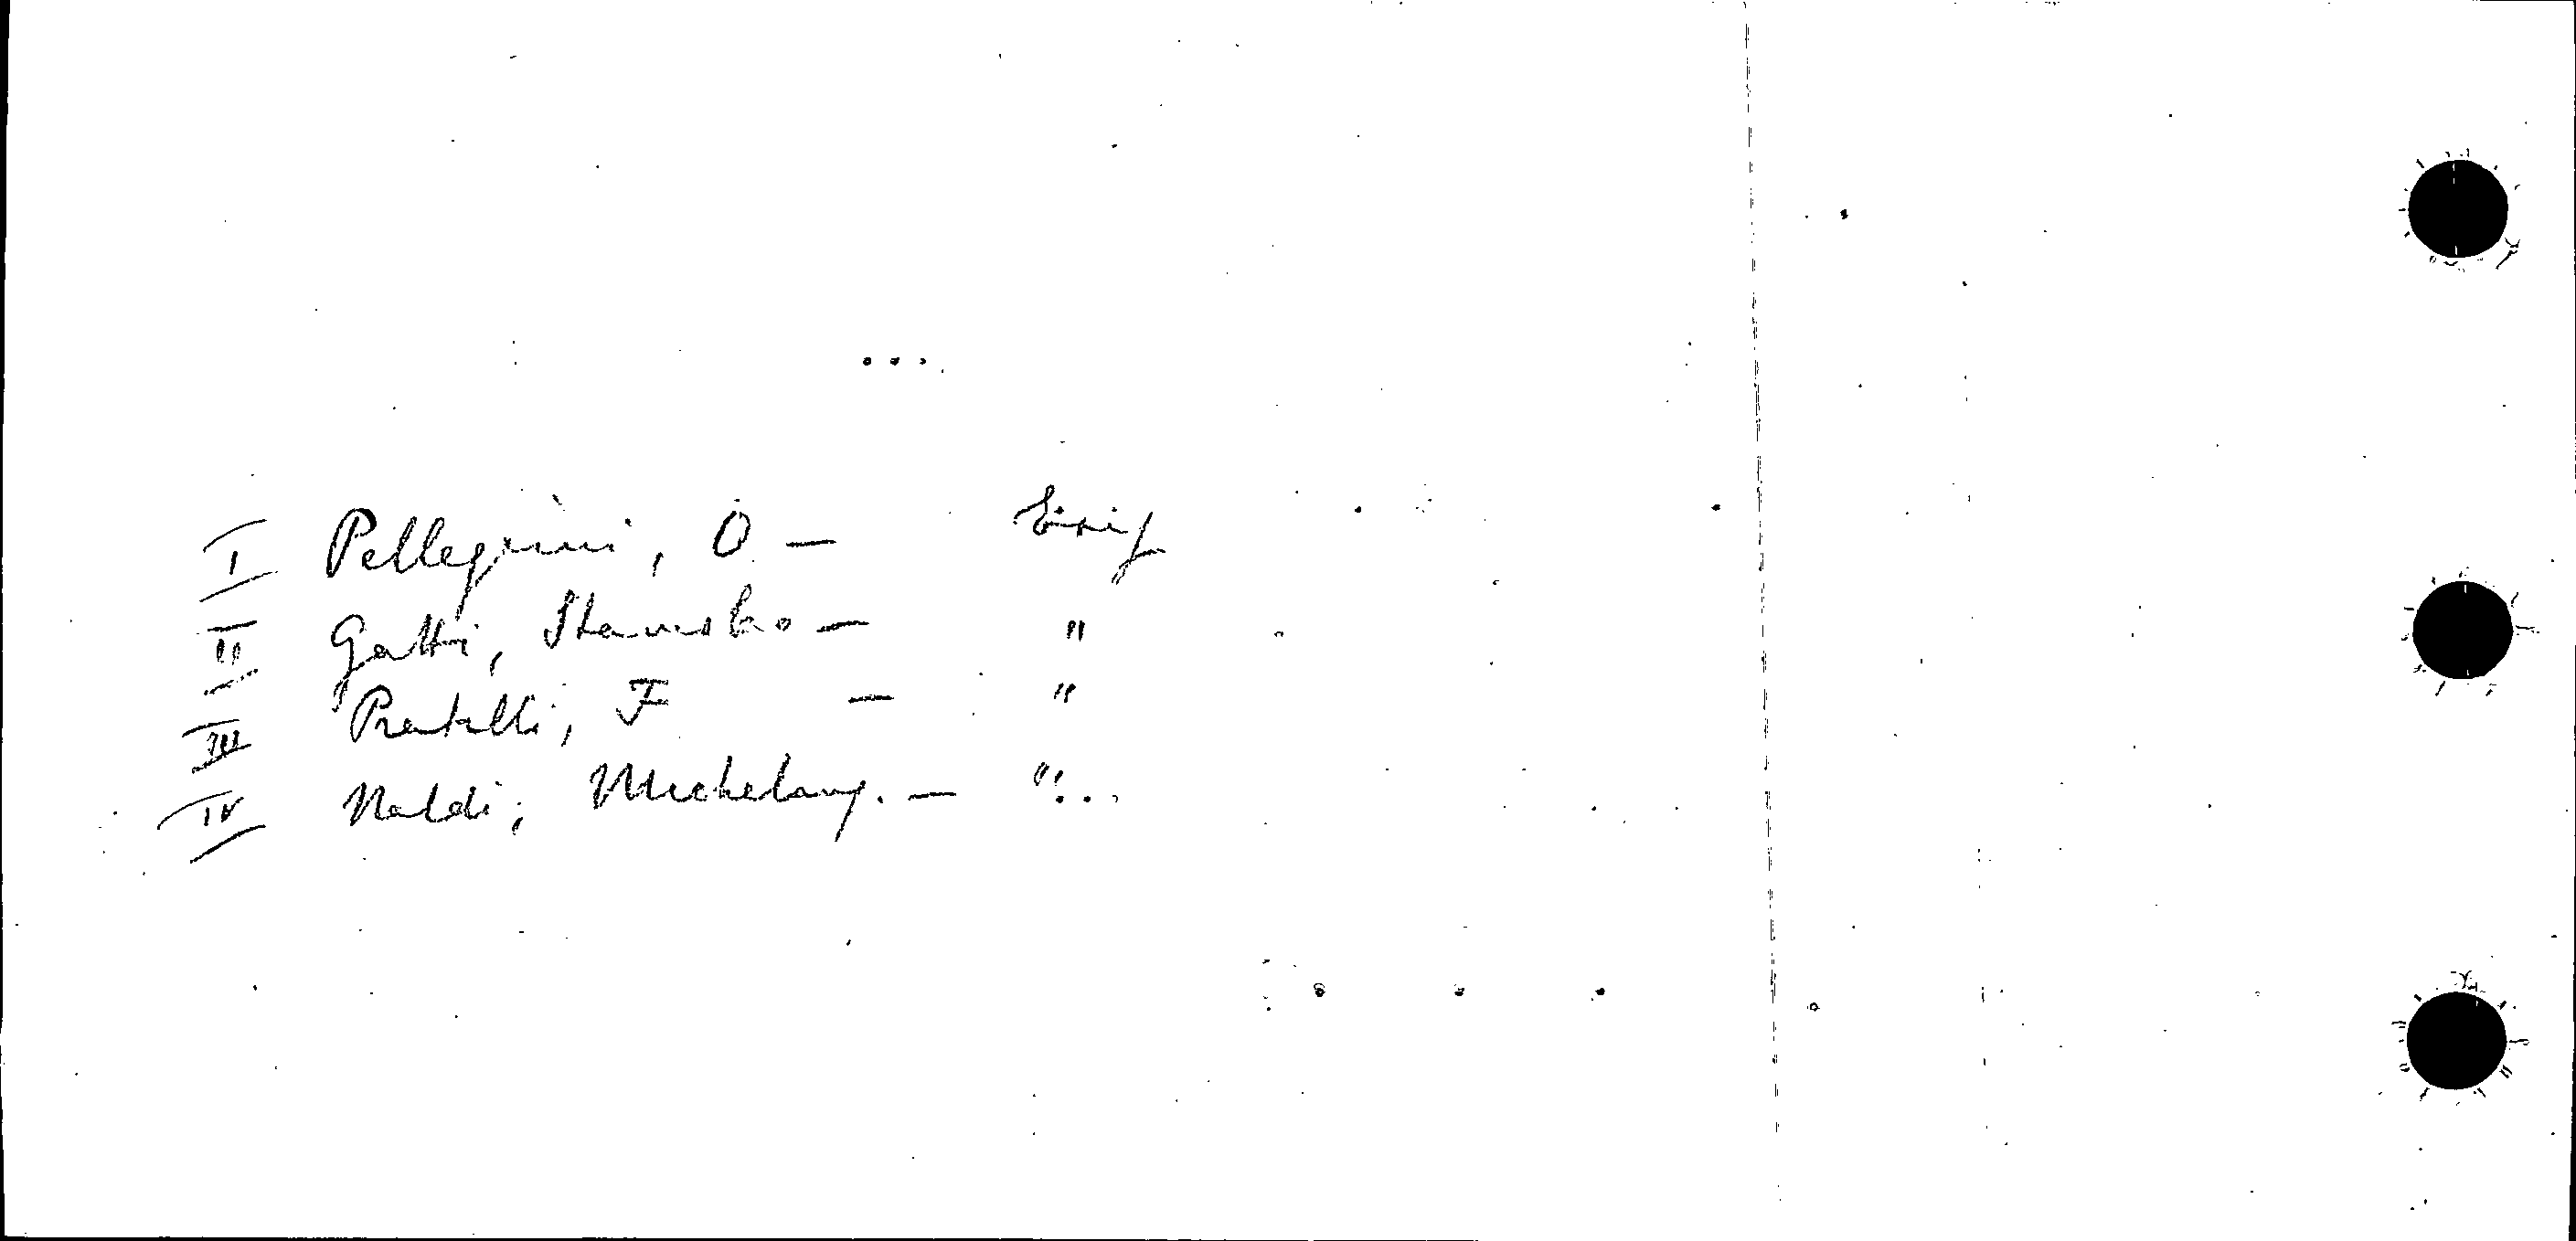 I Pellegrini, O —
II Gatti, Stanislao — "
III Pratelli, F — "
IV Naldi, Michelang. — "